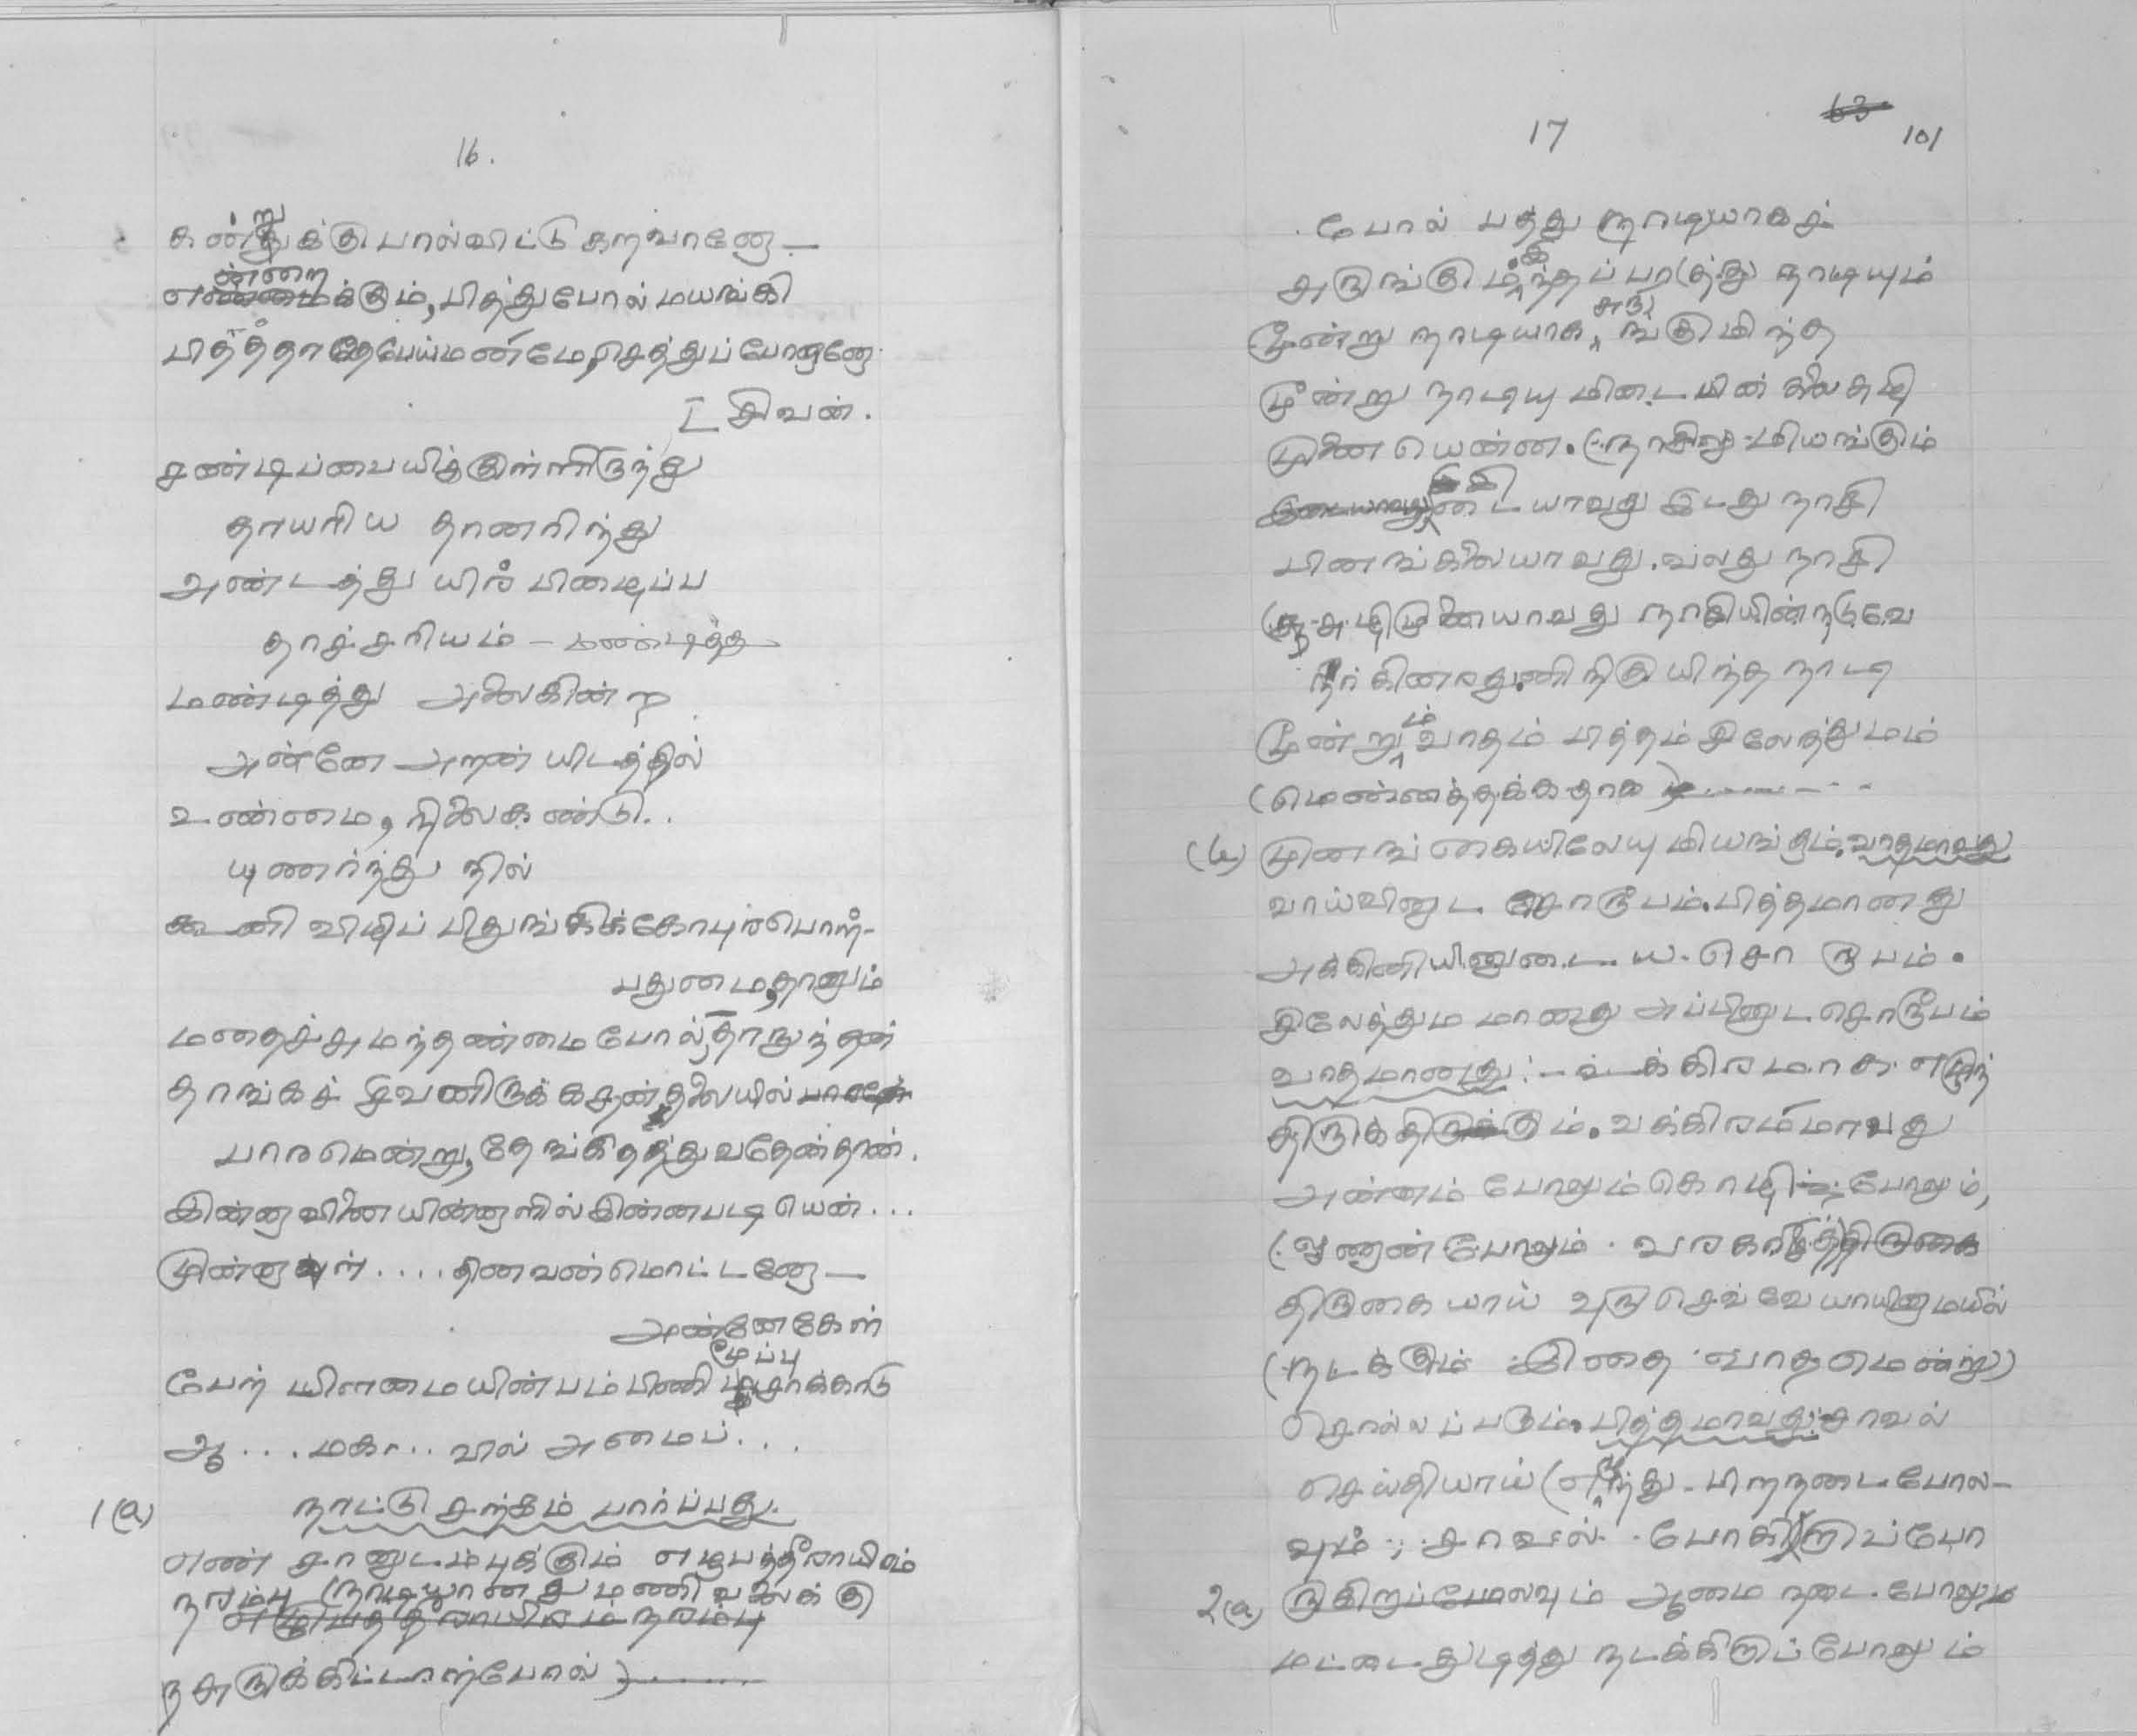 16.
கன்றுக்கு பால்விட்டு கறவானே —
என்றைக்கும், பித்துபோல் மயங்கி
பித்த்தாதேபேய்மண்மே, செத்துப் போனனே.
[சிவன்.
சண்டிப்பையிக்குள்ளிருந்து
தாயரிய தானரிந்து
அண்டத்து யிர் பிழைப்ப
தாச்சரியம் — மண்டித்த
மண்டித்து அலைகின்ற
அன்னே அறன் யிடத்தில்
உண்மை, நிலைகண்டு..
யுணர்ந்து நில்
கூனி விழிப் பிதுங்கிக்கோபுரபொர்-
பதுமை, தானும்
மதைச்சுமந்தண்மை போல், தாநுந்தன்
தாங்கச் சிவனிருக்க தன் தலையில்
பாரமென்று, தேங்கித்தத்துவதேன்தான்.
இன்னவினை யின்னாளில் இன்னபடி யென்...
முன்னவன் .... தினவண்மொட்டனே —
அன்னேகேள்
பேர் யிளமையின்பம் பிணி மூப்பு சாக்காடு
ஆ... மகா.. வில் அமைப்...
1 (a) நாட்டு சற்கம் பார்ப்பது.
எண் சானுடம்புக்கும் எழுபத்தீராயிரம்
நரம்பு (நாடியானது மணிவலைக்கு
எழுபத்தீராயிரம் நரம்பு
நசுருக்கிட்டாற்போல்) ........
17
63
101
போல் பத்து நாடியாகச்
சுருங்கும் இந்தப் பரத்து நாடியும்
மூன்று நாடியாக, சுருங்கு மிந்த
மூன்று நாடியு மிடை பின் கலை சுழி
முனை யென்ன. (நாசிலு மியங்கும்
இடையாவது இடது நாசி
பினங்கலையாவது. வலது நாசி
சுழிமுனையாவது நாசியின் நடுவே
நிற்கிணரது. னிநிகு யிந்த நாடி
மூன்றும் வாதம் பித்தம் சிலேத்துமம்
(மெண்ணத்தக்கதாக) ........
(b) முனங் கையிலேயு மியங்கும். வாதமாவது
வாய்வினுட சொரூபம். பித்தமானது
அக்கினியினுடைய சொரூபம்.
சிலேத்தும மானது அப்பினுட சொரூபம்
வாதமானது :- வக்கிரமாக எழுந்
திருக்திருக்கும். வக்கிரம்மாவது
அன்னம் போலும் கொழி போலும்,
திருகையாய் வுரு செவ்வேயாயினமயில்
(நடக்கும் இதை வாதமென்று)
சொல்லப்படும். பித்தமாவது: சாவல்
செய்தியாய் (எழுந்து. பிறநடை போல-
வும் ; சாவல். போகிறுப்போ
2(a) ருகிறப்போலவும் ஆமை நடை போலும்
மட்டை துடித்து நடக்கிறுப் போலும்